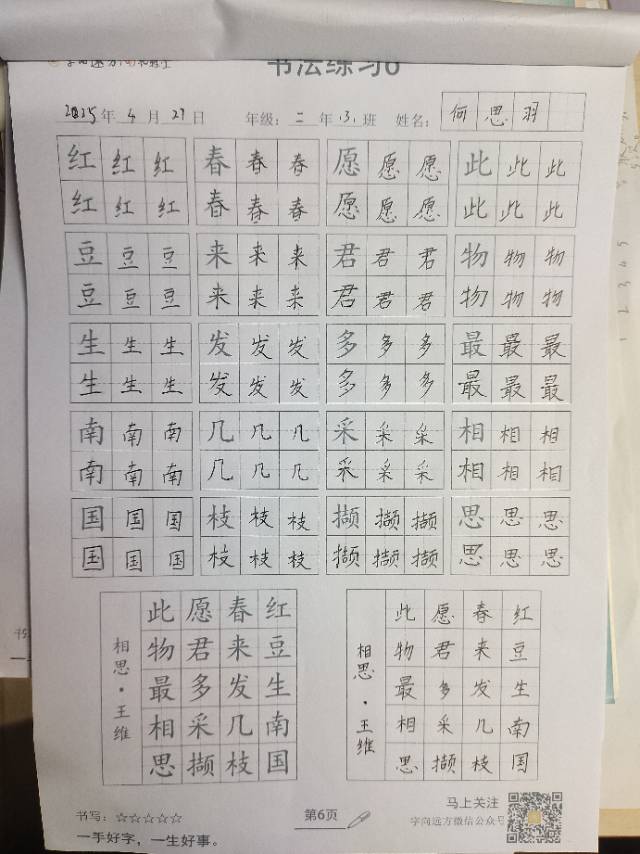 书法练习6
2025年4月27日 年级:二年(3)班 姓名:何思羽
红红红 春春春 愿愿愿 此此此
红红红 春春春 愿愿愿 此此此
豆豆豆 来来来 君君君 物物物
豆豆豆 来来来 君君君 物物物
生生生 发发发 多多多 最最最
生生生 发发发 多多多 最最最
南南南 几几几 采采采 相相相
南南南 几几几 采采采 相相相
国国国 枝枝枝 撷撷撷 思思思
国国国 枝枝枝 撷撷撷 思思思
红豆生南国
春来发几枝
愿君多采撷
此物最相思
相思·王维
红豆生南国
春来发几枝
愿君多采撷
此物最相思
相思·王维
书写:☆☆☆☆☆
一手好字,一生好事。
第6页
马上关注
字向远方微信公众号